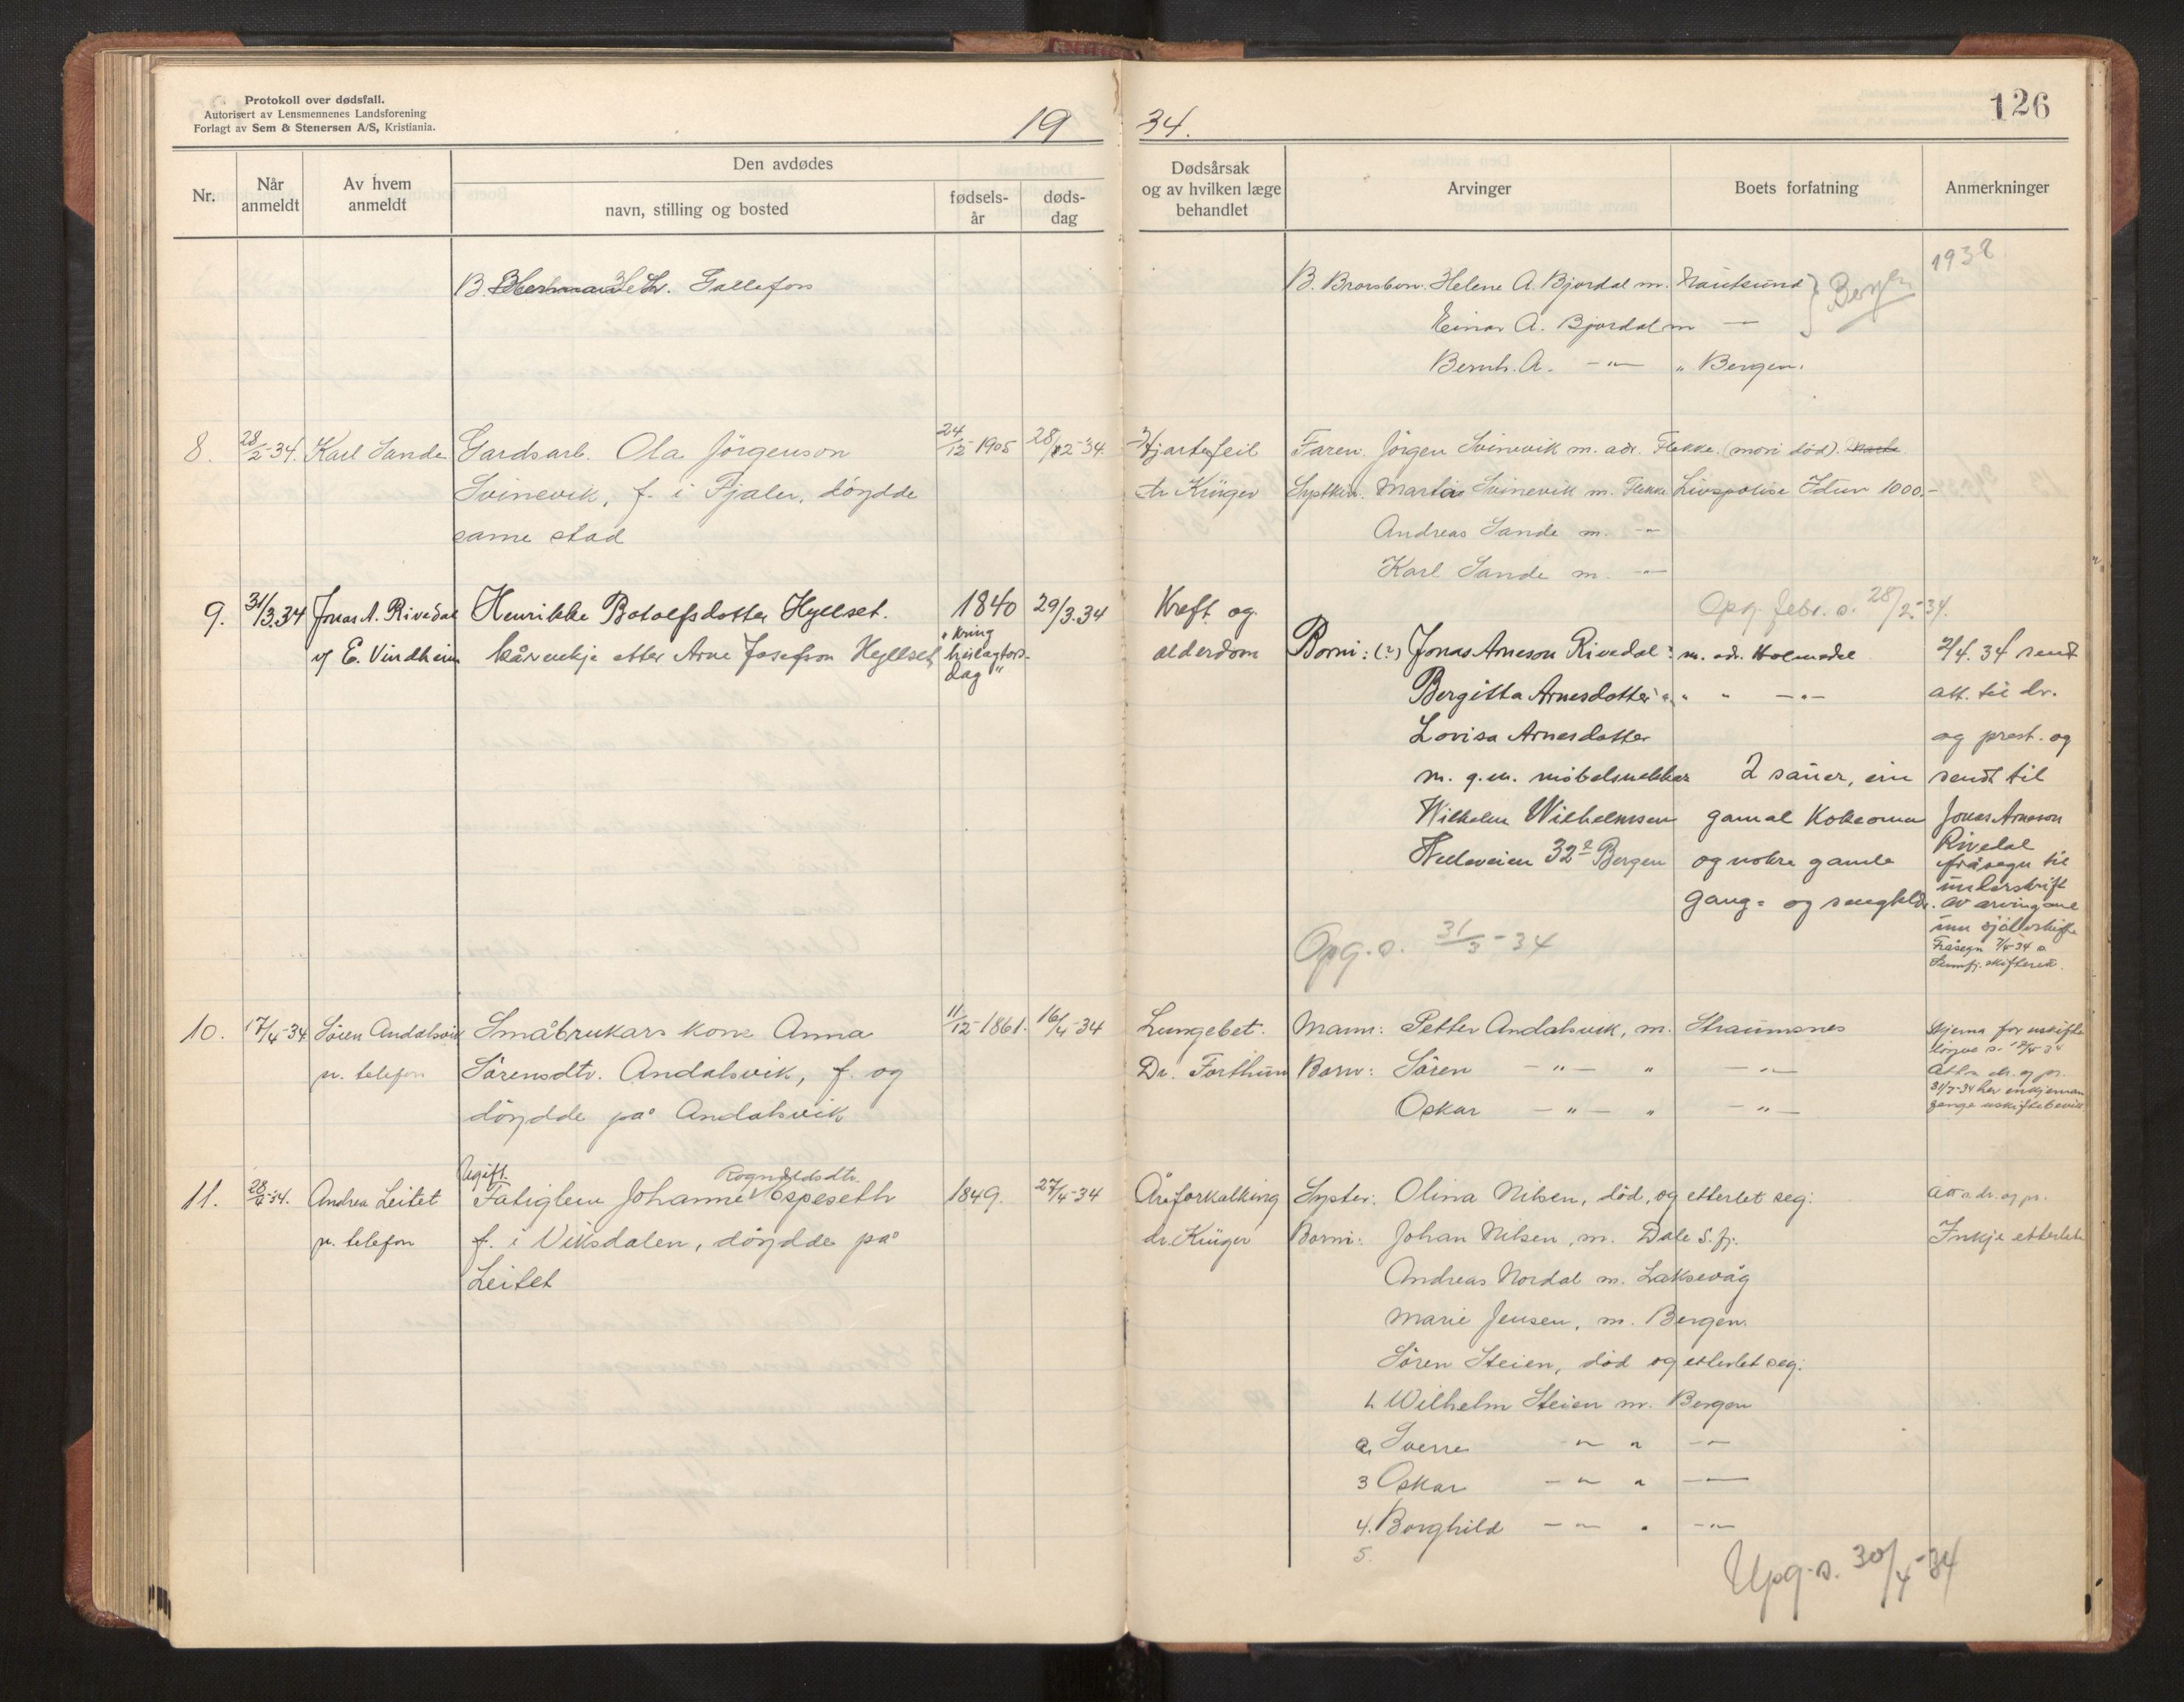 Protokoll over dødsfall.
Autorisert av Lensmennenes Landsforening
Forlagt av Sem & Stenersen A/S, Kristiania.
19 34.
126
Nr.
Når anmeldt
Av hvem anmeldt
Den avdødes
navn, stilling og bosted
fødsels-år
døds-dag
Dødsårsak og av hvilken læge behandlet
Arvinger
Boets forfatning
Anmerkninger
B. Gallefoss
B. Brorsborn. Helene A. Bjordal m. Nautsund } Bergen
1938
Einar A. Bjordal m —
Bernh. A. —"— " Bergen.
8. 28/2-34. Karl Sande Gardsarb. Ola Jörgenson 24/12-1905 28/2-34 Hjartefeil Faren. Jörgen Svinevik m. adr. Flekke. (mori död).
Svinevik, f. i Fjaler, döydde dr Krüger Syskin. Martin Svinevik m. Flekke Livspolise Idun 1000.-
same stad Andreas Sande m. —"—
Karl Sande m. —"—
Opg. febr. s. 28/2-34.
9. 31/3.34 Jonas A. Rivedal Henrikke Botolfsdotter Hyllset. 1840 29/3.34 Kreft og
v/ E. Vindheim kårenkje etter Arne Josefson Hyllset "kring helagtorsdag" alderdom Borni: (?) Jonas Arneson Rivedal: m. adr. Holmedal 2/4.34 sendt
Bergitta Arnesdotter " " " —"— att. til dr.
Lovisa Arnesdotter og prest. og
m. g.m. möbelsnekkar 2 sauer, ein sendt til
Wilhelm Wilhelmsen gamal kokeomn Jonas Arneson
32 Bergen og nokre gamle Rivedal
fråsegn til
underskrift
gang- og sengklde. av arvingane
um sjölvskifte
Fråsegn 7/4-34 s.
Sunnfj. skifterett.
Opg. s. 31/3-34
10. 17/4-34 Sören Andalsvik Småbrukars kone Anna 11/12-1861. 16/4-34 Lungebet. Mann: Petter Andalsvik, m. Straumsnes Skjema for uskifte
p. telefon Sörensdtr. Andalsvik, f. og Dr. Forthun Born: Sören —"— " —"— Att. dr. og pr.
döydde på Andalsvik Oskar —"— " —"—
11. 28/4-34. Andrea Leitet Ugift. Fatiglem Johanne Rognvaldsdtr. Espeseth 1849. 27/4-34 Åreforkalking Syster: Olina Nilsen, död, og etterlet seg: Att. dr. og pr.
p. telefon f. i Viksdalen, döydde på dr. Krüger Borni: Johan Nilsen, m. Dale S.fj. Inkje etterlete
Leitet Andreas Nordal m. Laksevåg
Marie Jensen, m. Bergen.
Sören Steien, död og etterlet seg:
1. Wilhelm Steien m. Bergen
2. Sverre —"— " —"—
3 Oskar —"— " —"—
4. Borghild —"— " —"—
5.
Upg. s. 30/4-34